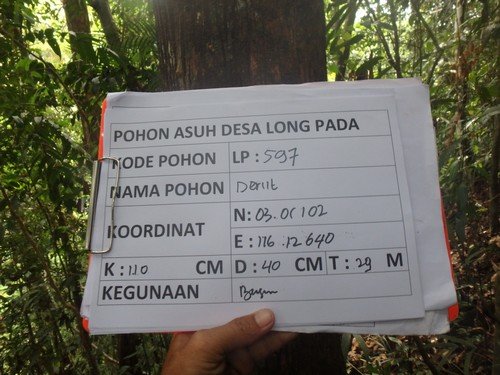 POHON ASUH DESA LONG PADA
KODE POHON LP : 597
NAMA POHON Deriit
KOORDINAT
N: 03.01 102
E : 116.12 640
K : 110 CM D : 40 CM T : 29 M
KEGUNAAN